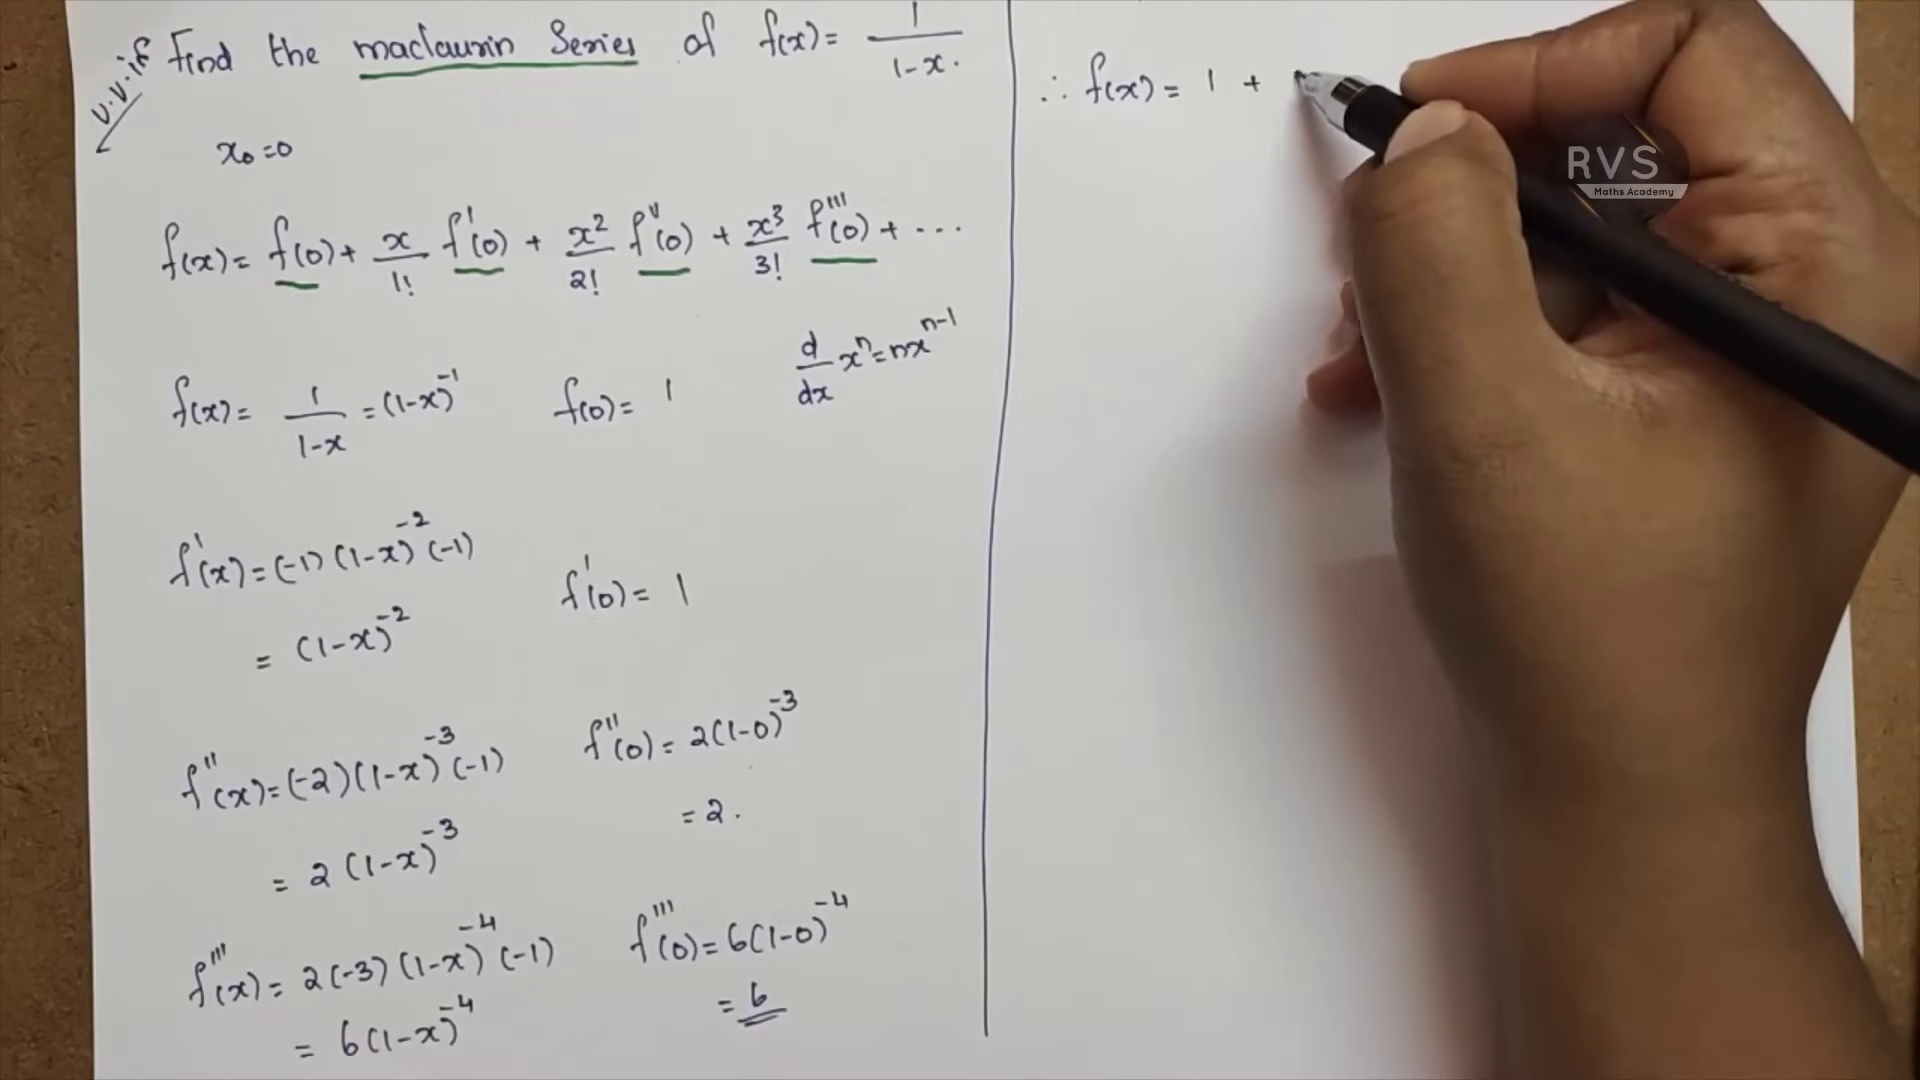 v.v.if Find the maclaurin Series of f(x) = 1/(1-x).
x₀=0
f(x) = f(0) + x/1! f'(0) + x²/2! f''(0) + x³/3! f'''(0) + ...
d/dx xⁿ = nxⁿ⁻¹
f(x) = 1/(1-x) = (1-x)⁻¹ f(0) = 1
f'(x) = (-1)(1-x)⁻²(-1)
f'(0) = 1
= (1-x)⁻²
f''(x) = (-2)(1-x)⁻³(-1) f''(0) = 2(1-0)⁻³
= 2.
= 2(1-x)⁻³
f'''(x) = 2(-3)(1-x)⁻⁴(-1) f'''(0) = 6(1-0)⁻⁴
= 6
= 6(1-x)⁻⁴
∴ f(x) = 1 +
RVS
Maths Academy